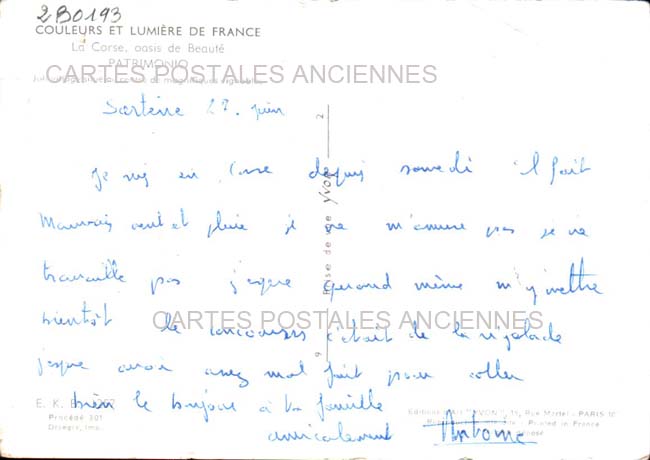 2B0193
COULEURS ET LUMIÈRE DE FRANCE
La Corse, oasis de Beauté
PATRIMONIO
CARTES POSTALES ANCIENNES
Sartène 27. juin
Je suis en Corse depuis samedi il fait
Mauvais vent et pluie je ne m'amuse pas je ne
travaille pas j'espère quand même m'y mettre
bientôt le concours c'était de la rigolade
CARTES POSTALES ANCIENNES
j'espère avoir assez mal fait pour coller
bien le bonjour à ta famille
amicalement Antoine
E. K.
Procédé 301
Draeger, Imp.
Editions d'Art YVON 15, Rue Martel - PARIS 10
Printed in France